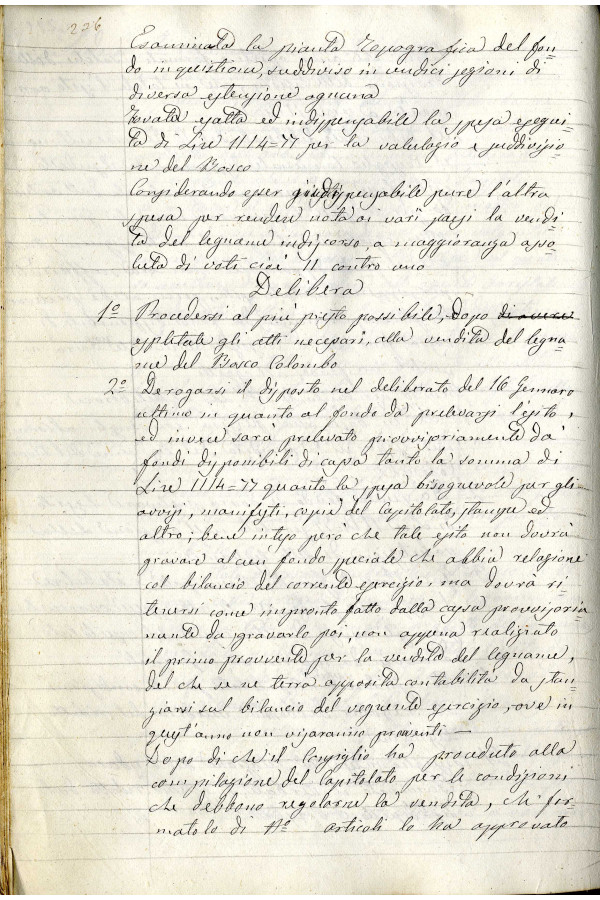 236
Esaminata la pianta Topografica del fon=
do in quistione, suddiviso in undici sezioni di
diversa estenzione ognuna
Trovata esatta ed indispensabile la spesa esegui=
ta di Lire 1114=77 per la valutagio e suddivisio=
ne del Bosco
Considerando esser indispensabile pure l'altra
spesa per rendere nota ai varî paesi la vendi=
ta del legname indiscorso, a maggioranza asso=
luta di voti cioè 11 contro uno
Delibera
1º Procedersi al più presto possibile, dopo
espletate gli atti necesari, alla vendita del legna=
me del Bosco Colombo
2º Derogarsi il disposto nel deliberato del 16 Gennaro
ultimo in quanto al fondo da prelevarsi l'esito,
ed invece sarà prelevato provvisoriamente dà
fondi disponibili di cassa tanto la somma di
Lire 1114=77 quanto la spesa bisognevole per gli
avvisi, manifesti, copia del Capitolato, stampe ed
altro; bene inteso però che tale esito non dovrà
gravare alcun fondo speciale che abbia relazione
col bilancio del corrente esercizio, ma dovrà ri=
tenersi come impronto fatto dalla cassa provvisoria
mente da sgravarlo poi, non appena realizzato
il primo provvento per la vendita del legname,
del che se ne terrà apposita contabilità da stan=
ziarsi sul bilancio del vegnente esercizio, ove in
quest'anno non vi saranno proventi —
Dopo di che il Consiglio ha proceduto alla
compilazione del Capitolato per le condizioni
che debbono regolarne la vendita, che for=
matolo di Nº articoli lo ha approvato